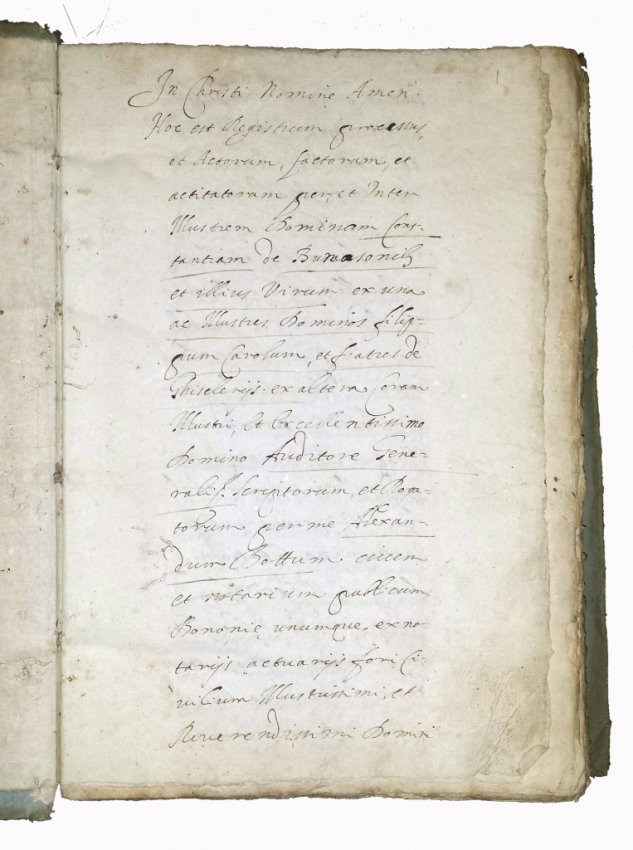 1
In Christi Nomine Amen.
Hoc est Registrum processus,
et Actorum, factorum, et
actitatorum per, et Inter
Illustrem Dominam Cons-
tantiam de
et illius Virum ex una
ac Illustres Dominos filip-
pum Carolum, et fratres de
Ghisellerijs ex altera Coram
Illustri, Et Excellentissimo
Domino Auditore Gene-
rali, Scriptorum, et Roga-
torum per me Alexan-
drum Chottum civem
et notarium publicum
Bononię unumque ex no-
tarijs actuarijs fori Ci-
vilium Illustrissimi, et
Reverendissimi Domini